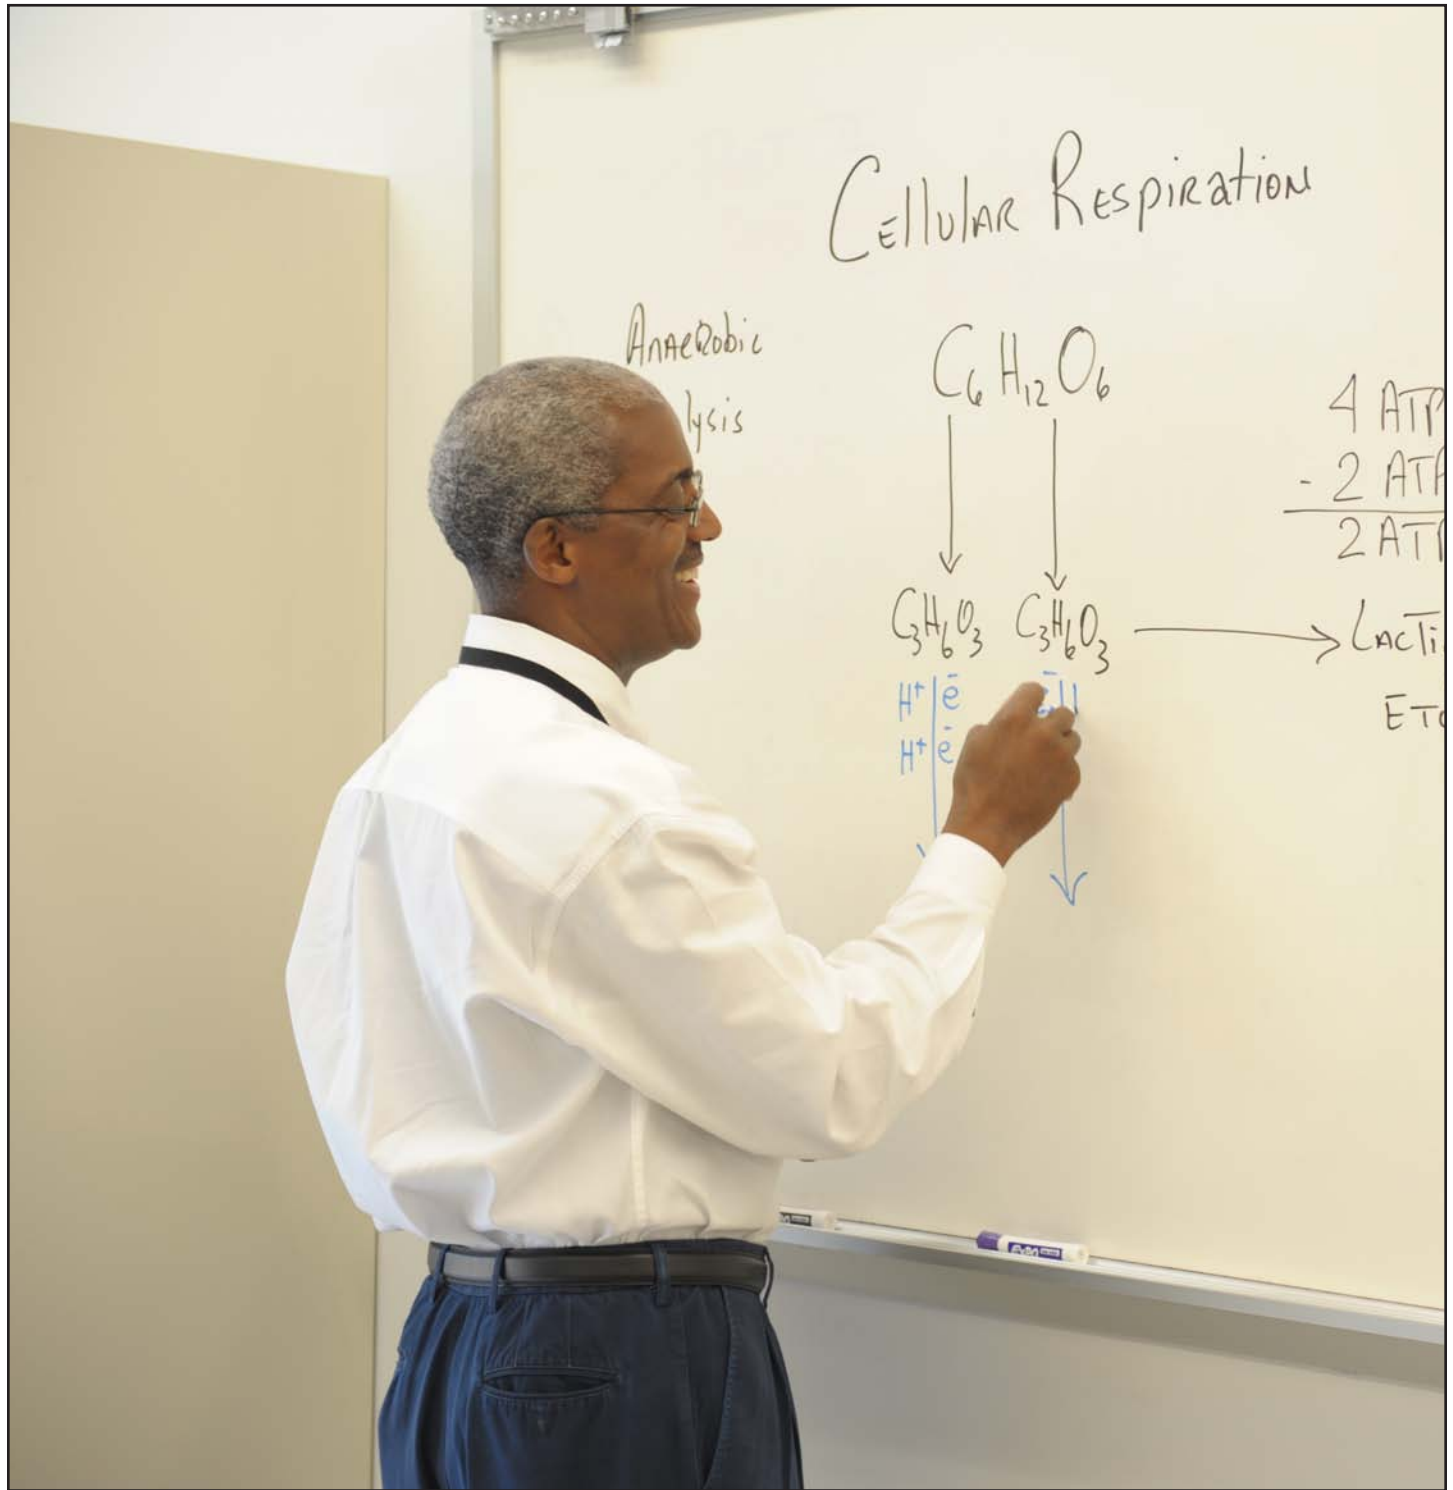 Cellular Respiration
Anaerobic
lysis
C₆H₁₂O₆
4 ATP
- 2 ATP
2 ATP
C₃H₆O₃ C₃H₆O₃ → Lacti
H⁺ e⁻
H⁺ e⁻
ETO
EXPO